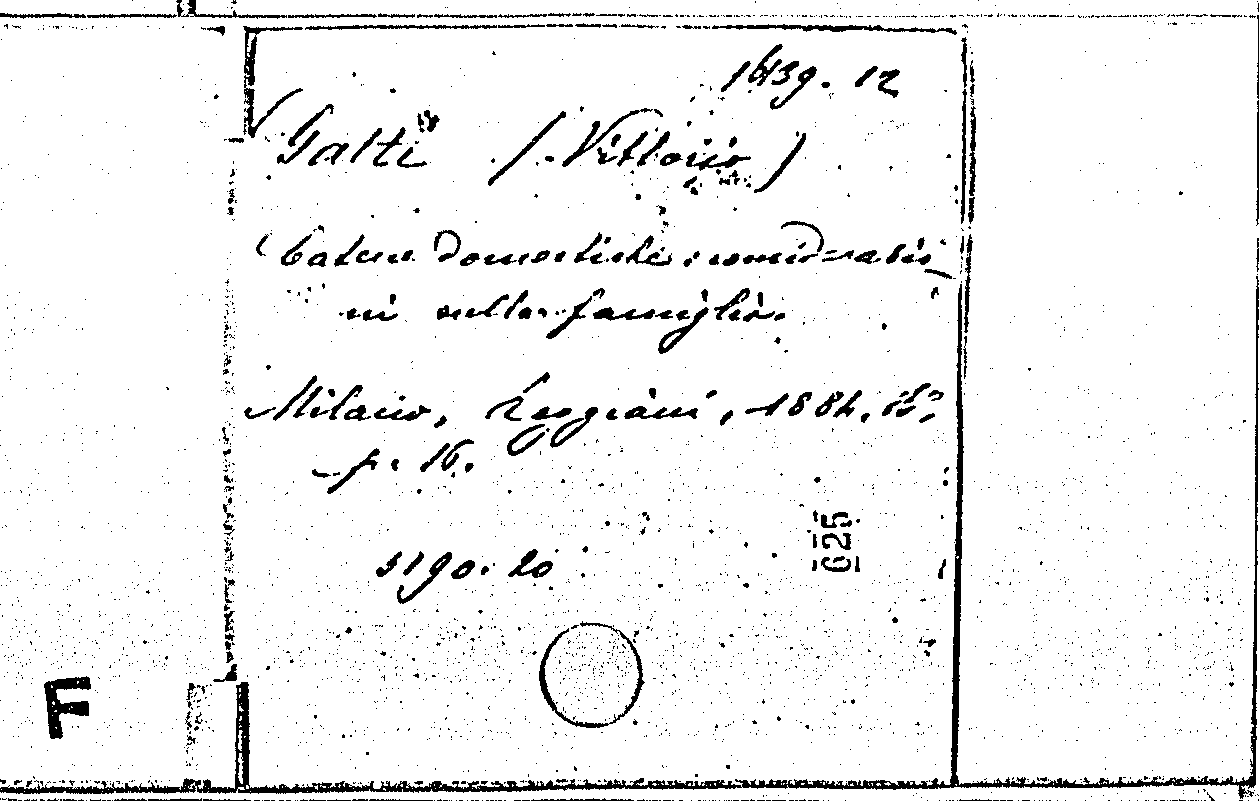 1639. 12
Galti (Vittorio)
Catene domestiche: considerazio
ni sulla famiglia.
Milano, Reggiani, 1884, 16°,
p. 16.
5190. 20
625
F